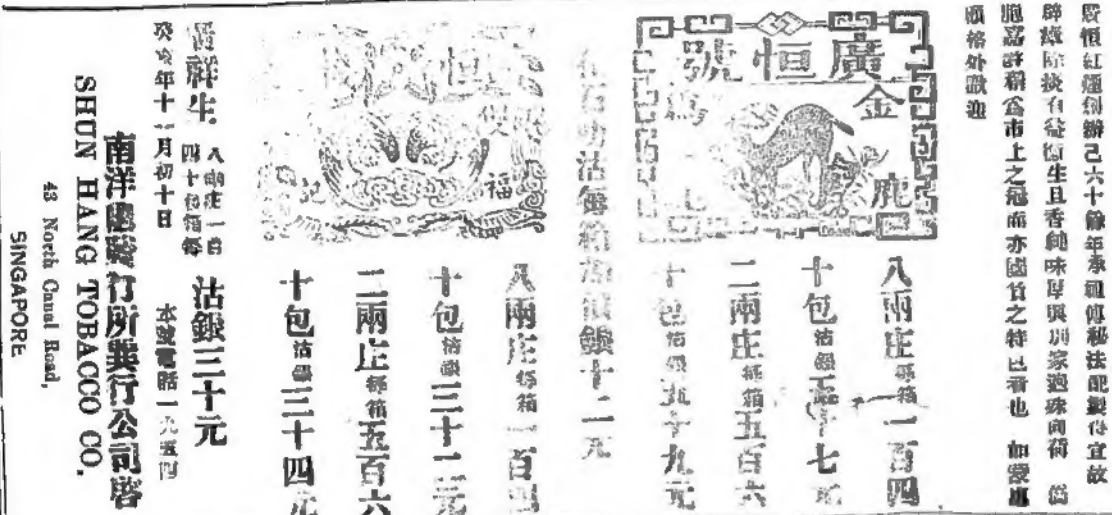 廣恒紅煙創辦已六十餘年承祖傳秘法配製得宜故
辟瘴除痰有益衛生且香純味厚與別家逈殊向荷 僑
胞嘉許稱為市上之冠而亦國貨之特色者也 如蒙惠
顧格外歡迎
廣恒號
金鹿
八兩庄每箱一百四
十包沽銀五十七元
二兩庄每箱五百六
十包沽銀五十九元
沽每箱 銀十二元
恒
雙
福
八兩庄每箱一百四
十包沽銀三十二元
二兩庄每箱五百六
十包沽銀三十四元
祥生 八兩庄一百四十包箱每 沽銀三十元
癸亥年十一月初十日 本號電話一九五四
南洋 行所巽行公司啓
SHUN HANG TOBACCO CO.
43 North Canal Road,
SINGAPORE